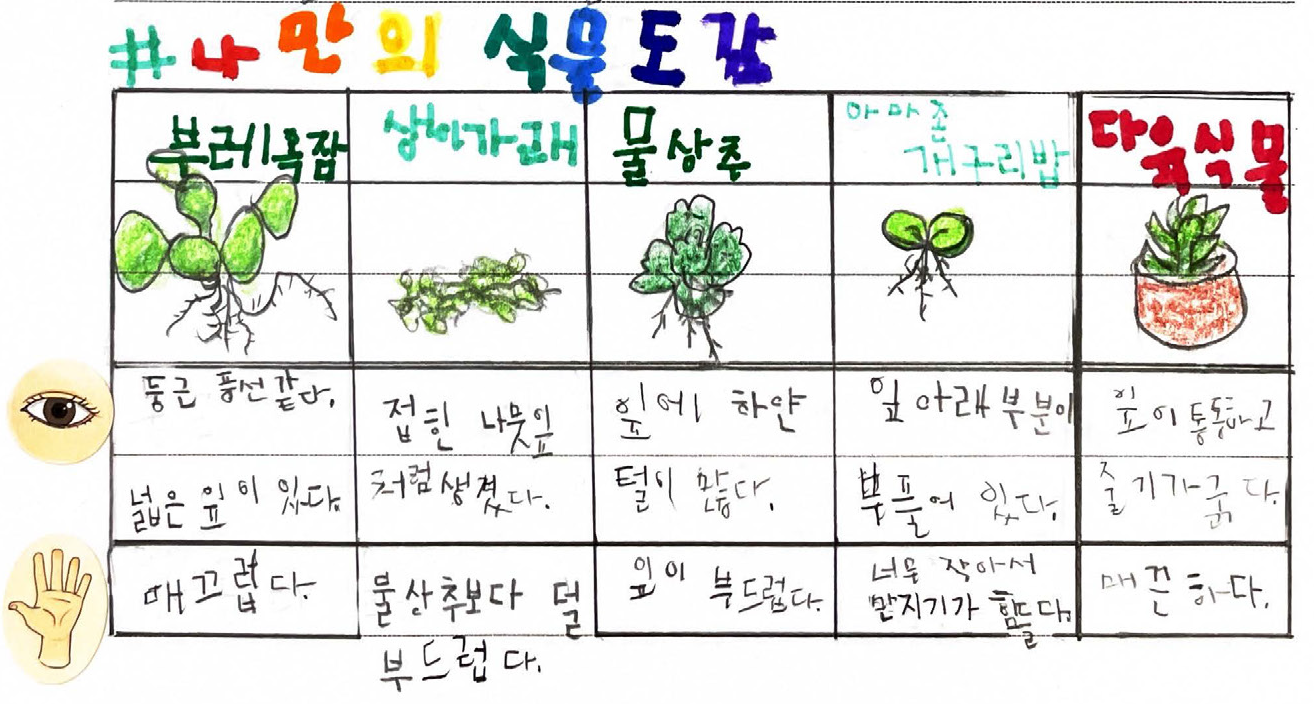 #나만의 식물도감
부레옥잠
생이가래
물상추
아마존
개구리밥
다육식물
둥근 풍선같다.
넓은 잎이 있다.
접힌 나뭇잎
처럼생겼다.
잎에 하얀
털이 많다.
잎 아래 부분이
부풀어 있다.
잎이 통통하고
줄기가 굵다.
매끄럽다.
물상추보다 덜
부드럽다.
잎이 부드럽다.
너무 작아서
만지기가 힘들다.
매끈하다.